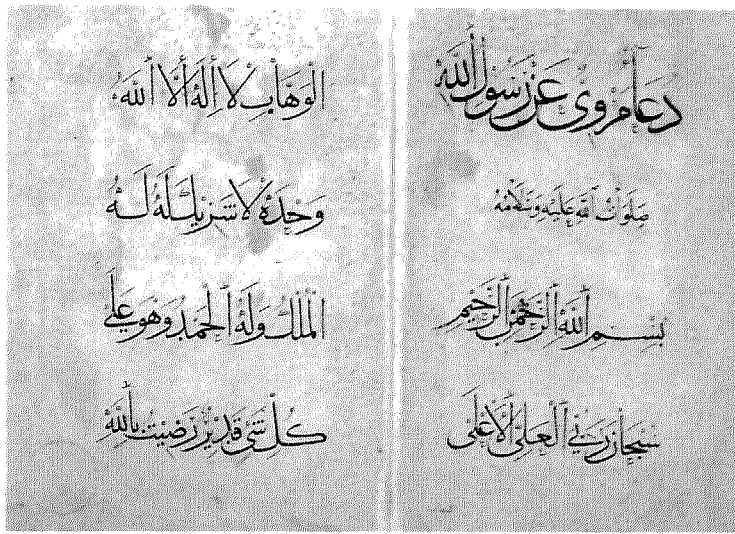 دعاء مروي عن رسول الله
صلوات الله عليه وسلامه
بسم الله الرحمن الرحيم
سبحان ربي العلي الاعلى
الوهاب لا اله الا الله
وحده لا شريك له له
الملك وله الحمد وهو على
كل شئ قدير رضيت بالله